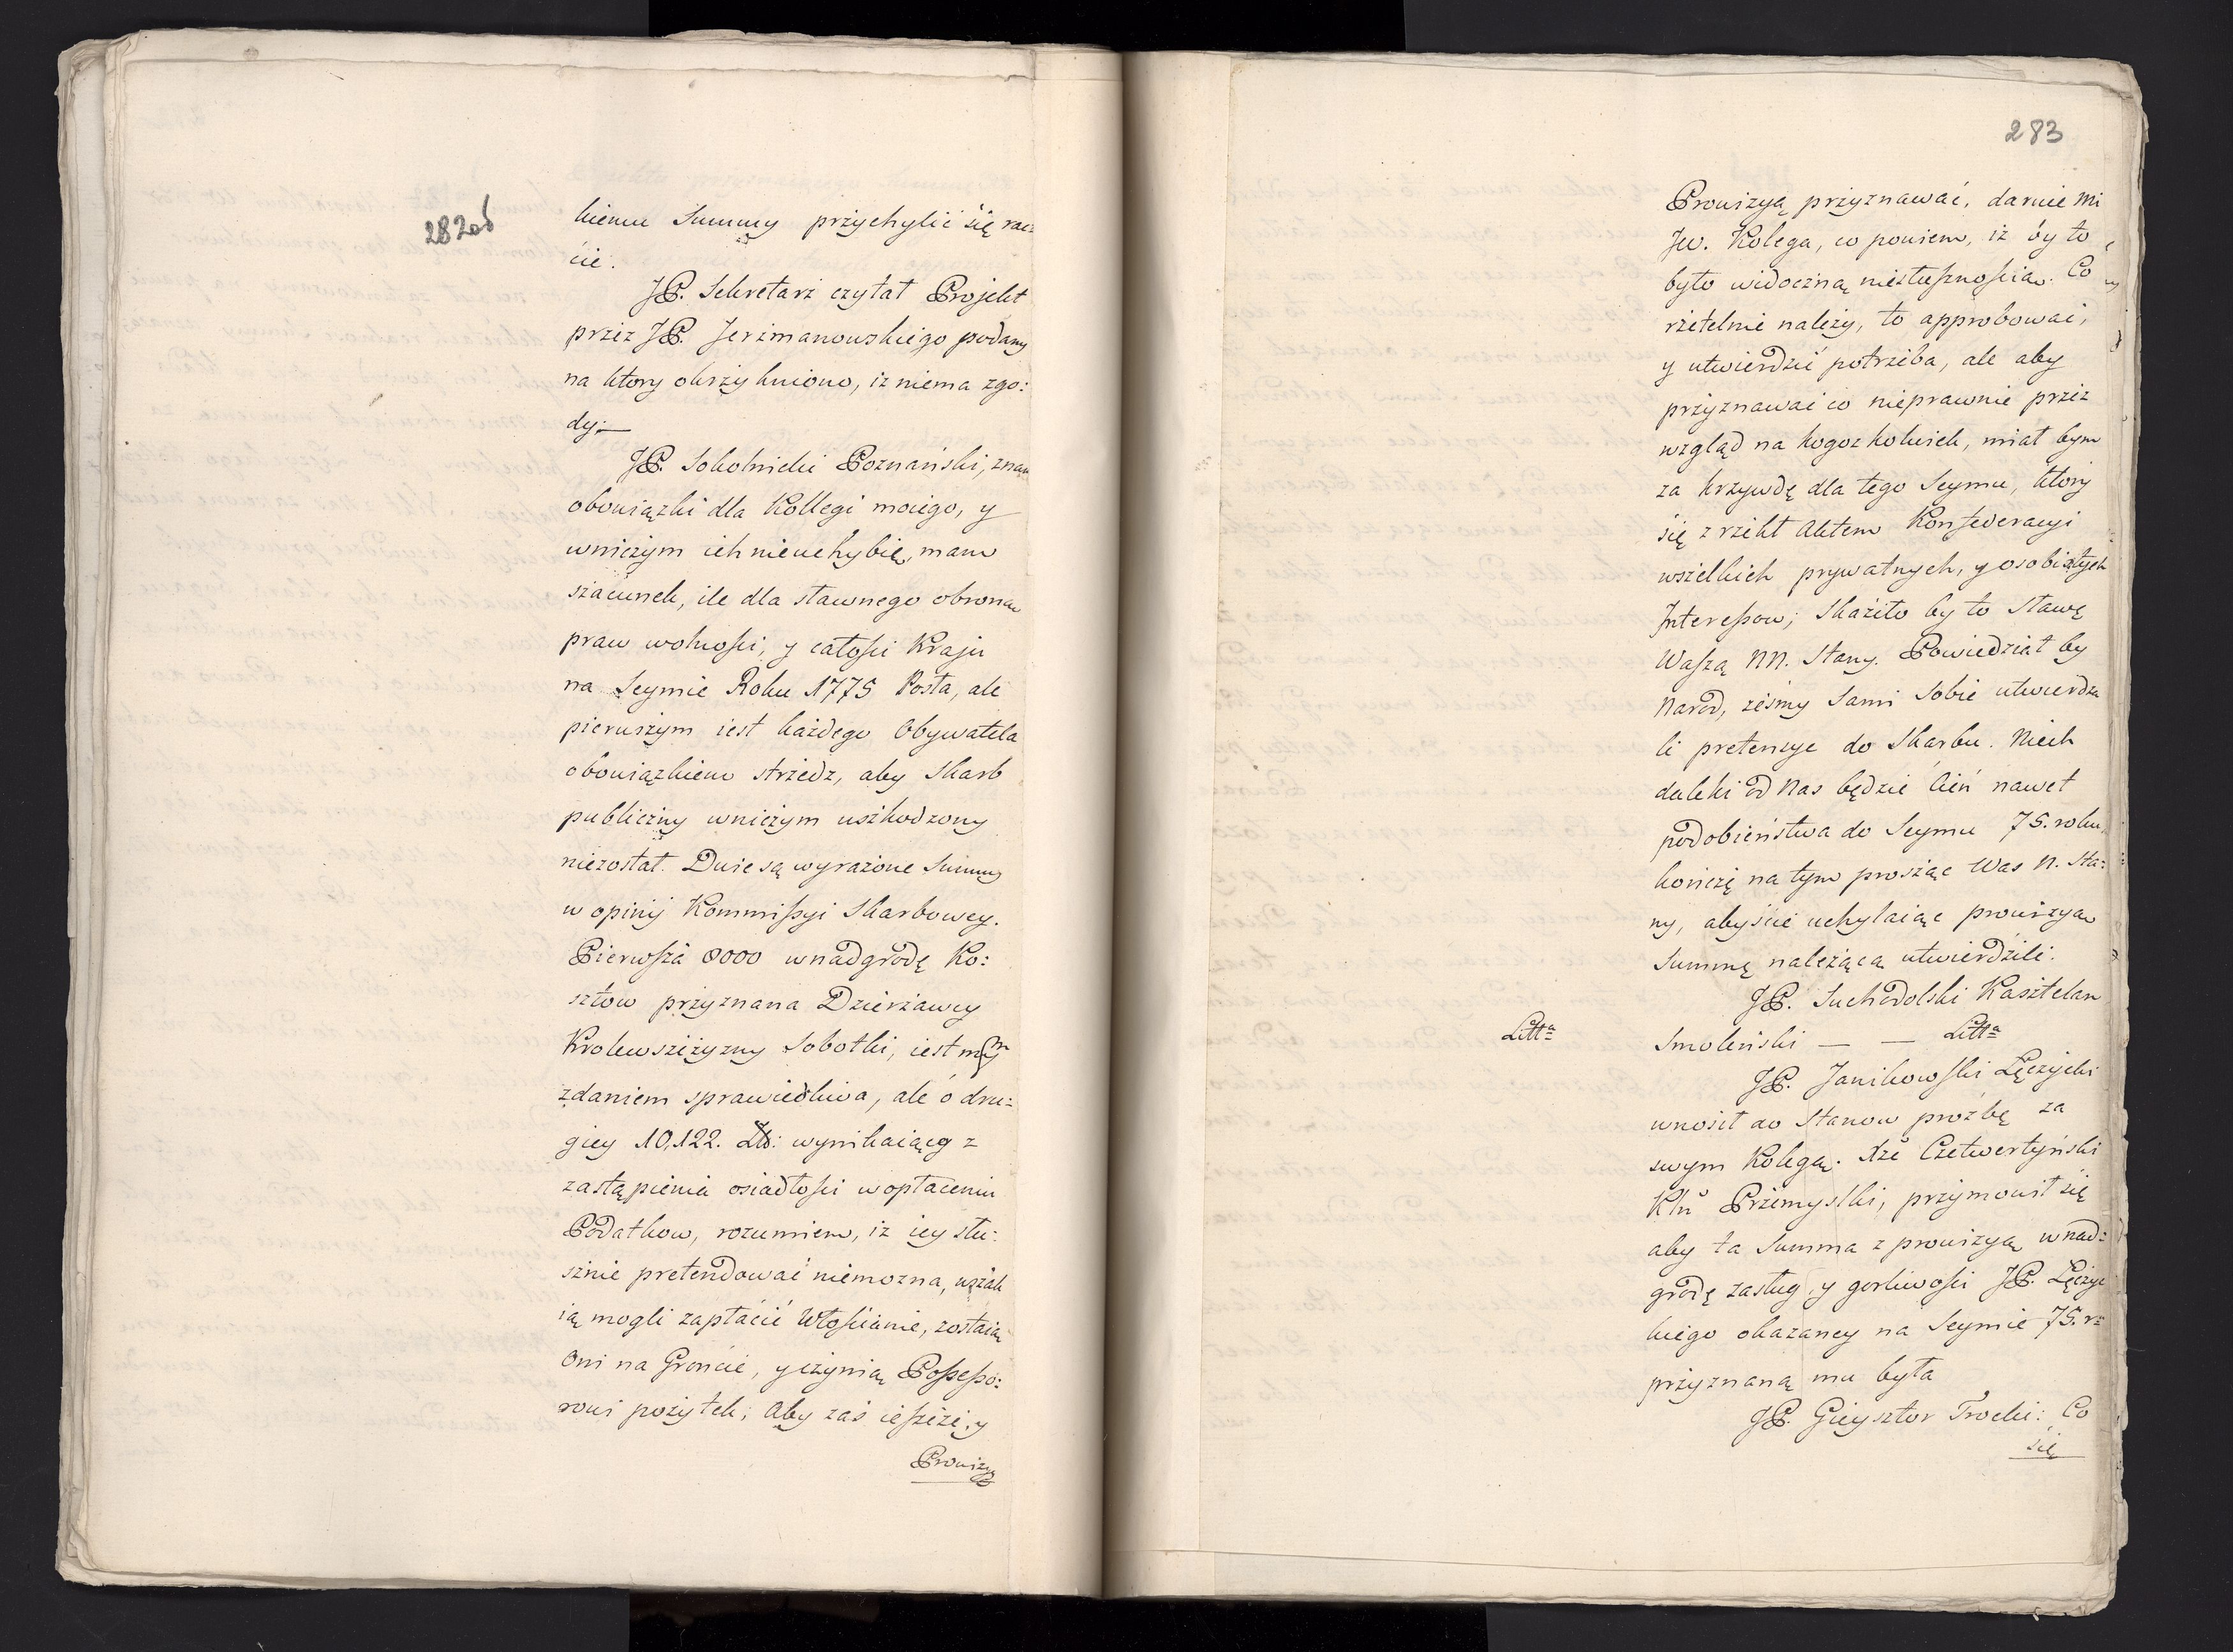 282ob
kiemu Summy przychylić się rac:
cie.
JP. Sekretarz czytał Projekt
przez JP. Jerzmanowskiego podany
na ktory okrzykniono, iz niema zgo:
dy.—
JP. Sokolnicki Poznański, znam
obowiązki dla Kollegi moiego, y
wniczym ich nieuchybię, mam
szacunek, ile dla sławnego obroną
praw wolności, y całości Kraju
na Seymie Roku 1775 Posła, ale
pierwszym iest każdego Obywatela
obowiązkiem strzedz, aby Skarb
publiczny wniczym uszkodzony
niezostał. Dwie są wyrażone Summy
w opinij Kommissyi Skarbowey.
Pierwsza 8000 wnadgrodę Ko:
sztow przyznana Dzierżawcy
Krolewszczyzny Sobotki, iest mym
zdaniem sprawiedliwa, ale o dru:
giey 10,122. Zł: wynikaiącey z
zastąpienia osiadłości w opłaceniu
Podatkow, rozumiem, iz iey słu:
sznie pretendować niemozna, wszak
ią mogli zapłacić Włościanie, zostaią
Oni na Groncie, y czynią Possesso:
rowi pozytek; Aby zaś ieszcze y
Prowizyą
283
Prowizyą przyznawać, daruie mi
JW. Kolega, co powiem, iż by to
było widoczną niesłusznością. Co
rzetelnie należy, to approbować,
y utwierdzić potrzeba, ale aby
przyznawać co nieprawnie przez
wzgląd na kogoz kolwiek, miał bym
za krzywdę dla tego Seymu, ktory
się zrzekł Aktem Konfederacyi
wszelkich prywatnych, y osobistych
Interessow; Skaziło by to Sławę
Waszą NN. Stany. Powiedział by
Narod, ześmy Sami Sobie utwierdza
li pretensye do Skarbu. Niech
daleki od Nas będzie Cień nawet
podobieństwa do Seymu 75. roku,
kończę na tym prosząc Was N. Sta:
ny, abyście uchylaiąc prowizyą
Summę należącą utwierdzili.
JP. Suchodolski Kasztelan
Litt<sup>a</sup>
Smoleński — — Litt<sup>a</sup>
JP. Janikowski Łęczycki
wnosił do Stanow proźbę za
swym Kolegą. Xże Czetwertyński
Kln Przemyslki, przymowił się
aby ta Summa z prowizyą wnad:
grodę zasług y gorliwości JP. Łęczyc
kiego okazaney na Seymie 75. r:
przyznaną mu była
JP. Gieysztor Trocki: Co
się